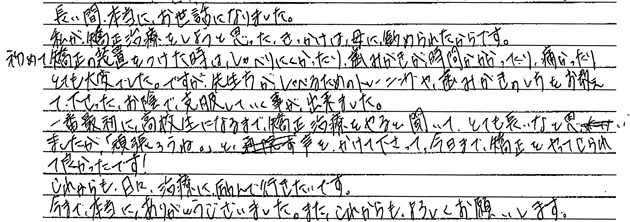 長い間、本当に、お世話になりました。
私が矯正治療をしようと思った、きっかけは、母に、勧められたからです。
初めて矯正の装置をつけた時は、しゃべりにくかったり、歯みがきが時間がかかったり、痛かったり
とても大変でした。ですが、先生方が、しゃべるためのトレーニングや、歯みがきのしかたをお教え
て下さった、お陰で、克服していく事が、出来ました。
一番最初に、高校生になるまで、矯正治療をやると聞いて、とても長いなと思い
ましたが「頑張ろうね。」と、声をかけて下さって、今日まで、矯正をやってこられ
て良かったです!
これからも、日々、治療に、励んで行きたいです。
今まで、本当に、ありがとうございました。また、これからも、よろしくお願いします。